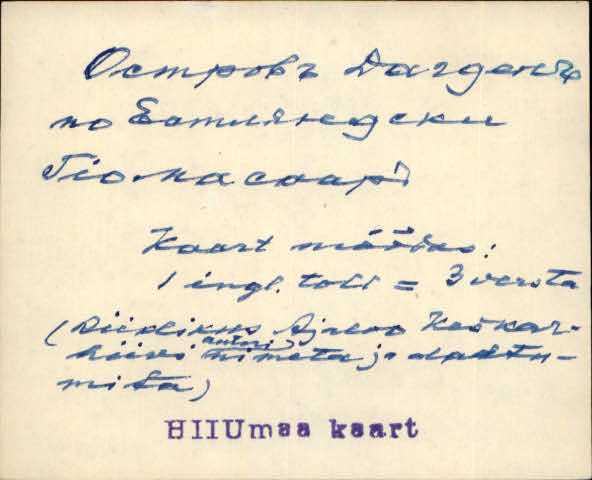 Островъ Дагденъ
по Естляндски
Гіомасаарі
Kaart mõõdus:
1 ingl. toll = 3 versta
(Riiklikus Ajaloo Keskar-
hiivi autori nimeta ja dateeri-
mata)
HIIUmaa kaart